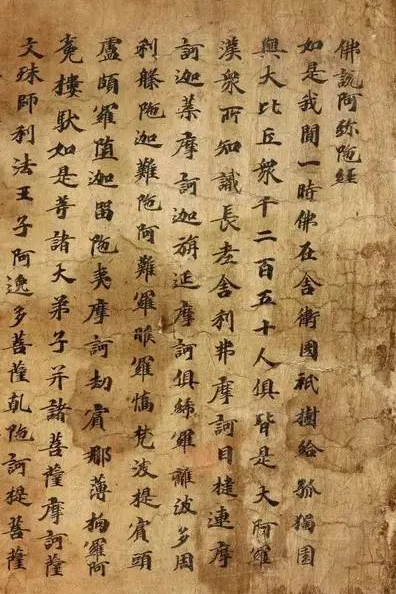 佛說阿弥陁經
如是我聞一時佛在舎衛國祇樹給孤獨園
與大比丘衆千二百五十人俱皆是大阿羅
漢衆所知識長老舎利弗摩訶目揵連摩
訶迦葉摩訶迦旃延摩訶俱絺羅離波多周
利槃陁迦難陁阿難羅睺羅憍梵波提賓頭
盧頗羅墮迦留陁夷摩訶劫賓那薄拘羅阿
㝹樓馱如是等諸大弟子并諸菩薩摩訶薩
文殊師利法王子阿逸多菩薩乹陁訶提菩薩